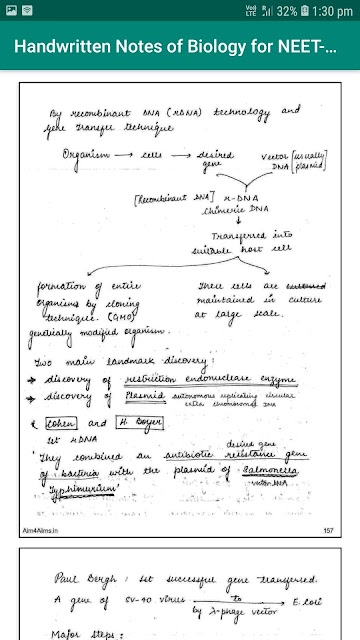 Vo)) LTE 32% 1:30 pm
Handwritten Notes of Biology for NEET-...
By recombinant DNA (rDNA) technology and
gene transfer technique
Organism → cells → desired gene
Vector [usually DNA plasmid]
[Recombinant DNA] r-DNA
Chimeric DNA
Transferred into
suitable host cell
formation of entire
organisms by cloning
technique. (GMO)
genetically modified organism.
These cells are
maintained in culture
at large scale.
Two main landmark discovery:
→ discovery of restriction endonuclease enzyme
→ discovery of Plasmid autonomous replicating circular
extra chromosomal DNA
* Cohen and H. Boyer
1st rDNA
desired gene
"They combined an antibiotic resistance gene
of bacteria with the plasmid of Salmonella
vector DNA
Typhimurium"
Aim4Aiims.in
157
Paul Bergh: 1st successful gene transferred.
A gene of SV-40 virus to → E.coli
by λ-phage vector
Major steps: